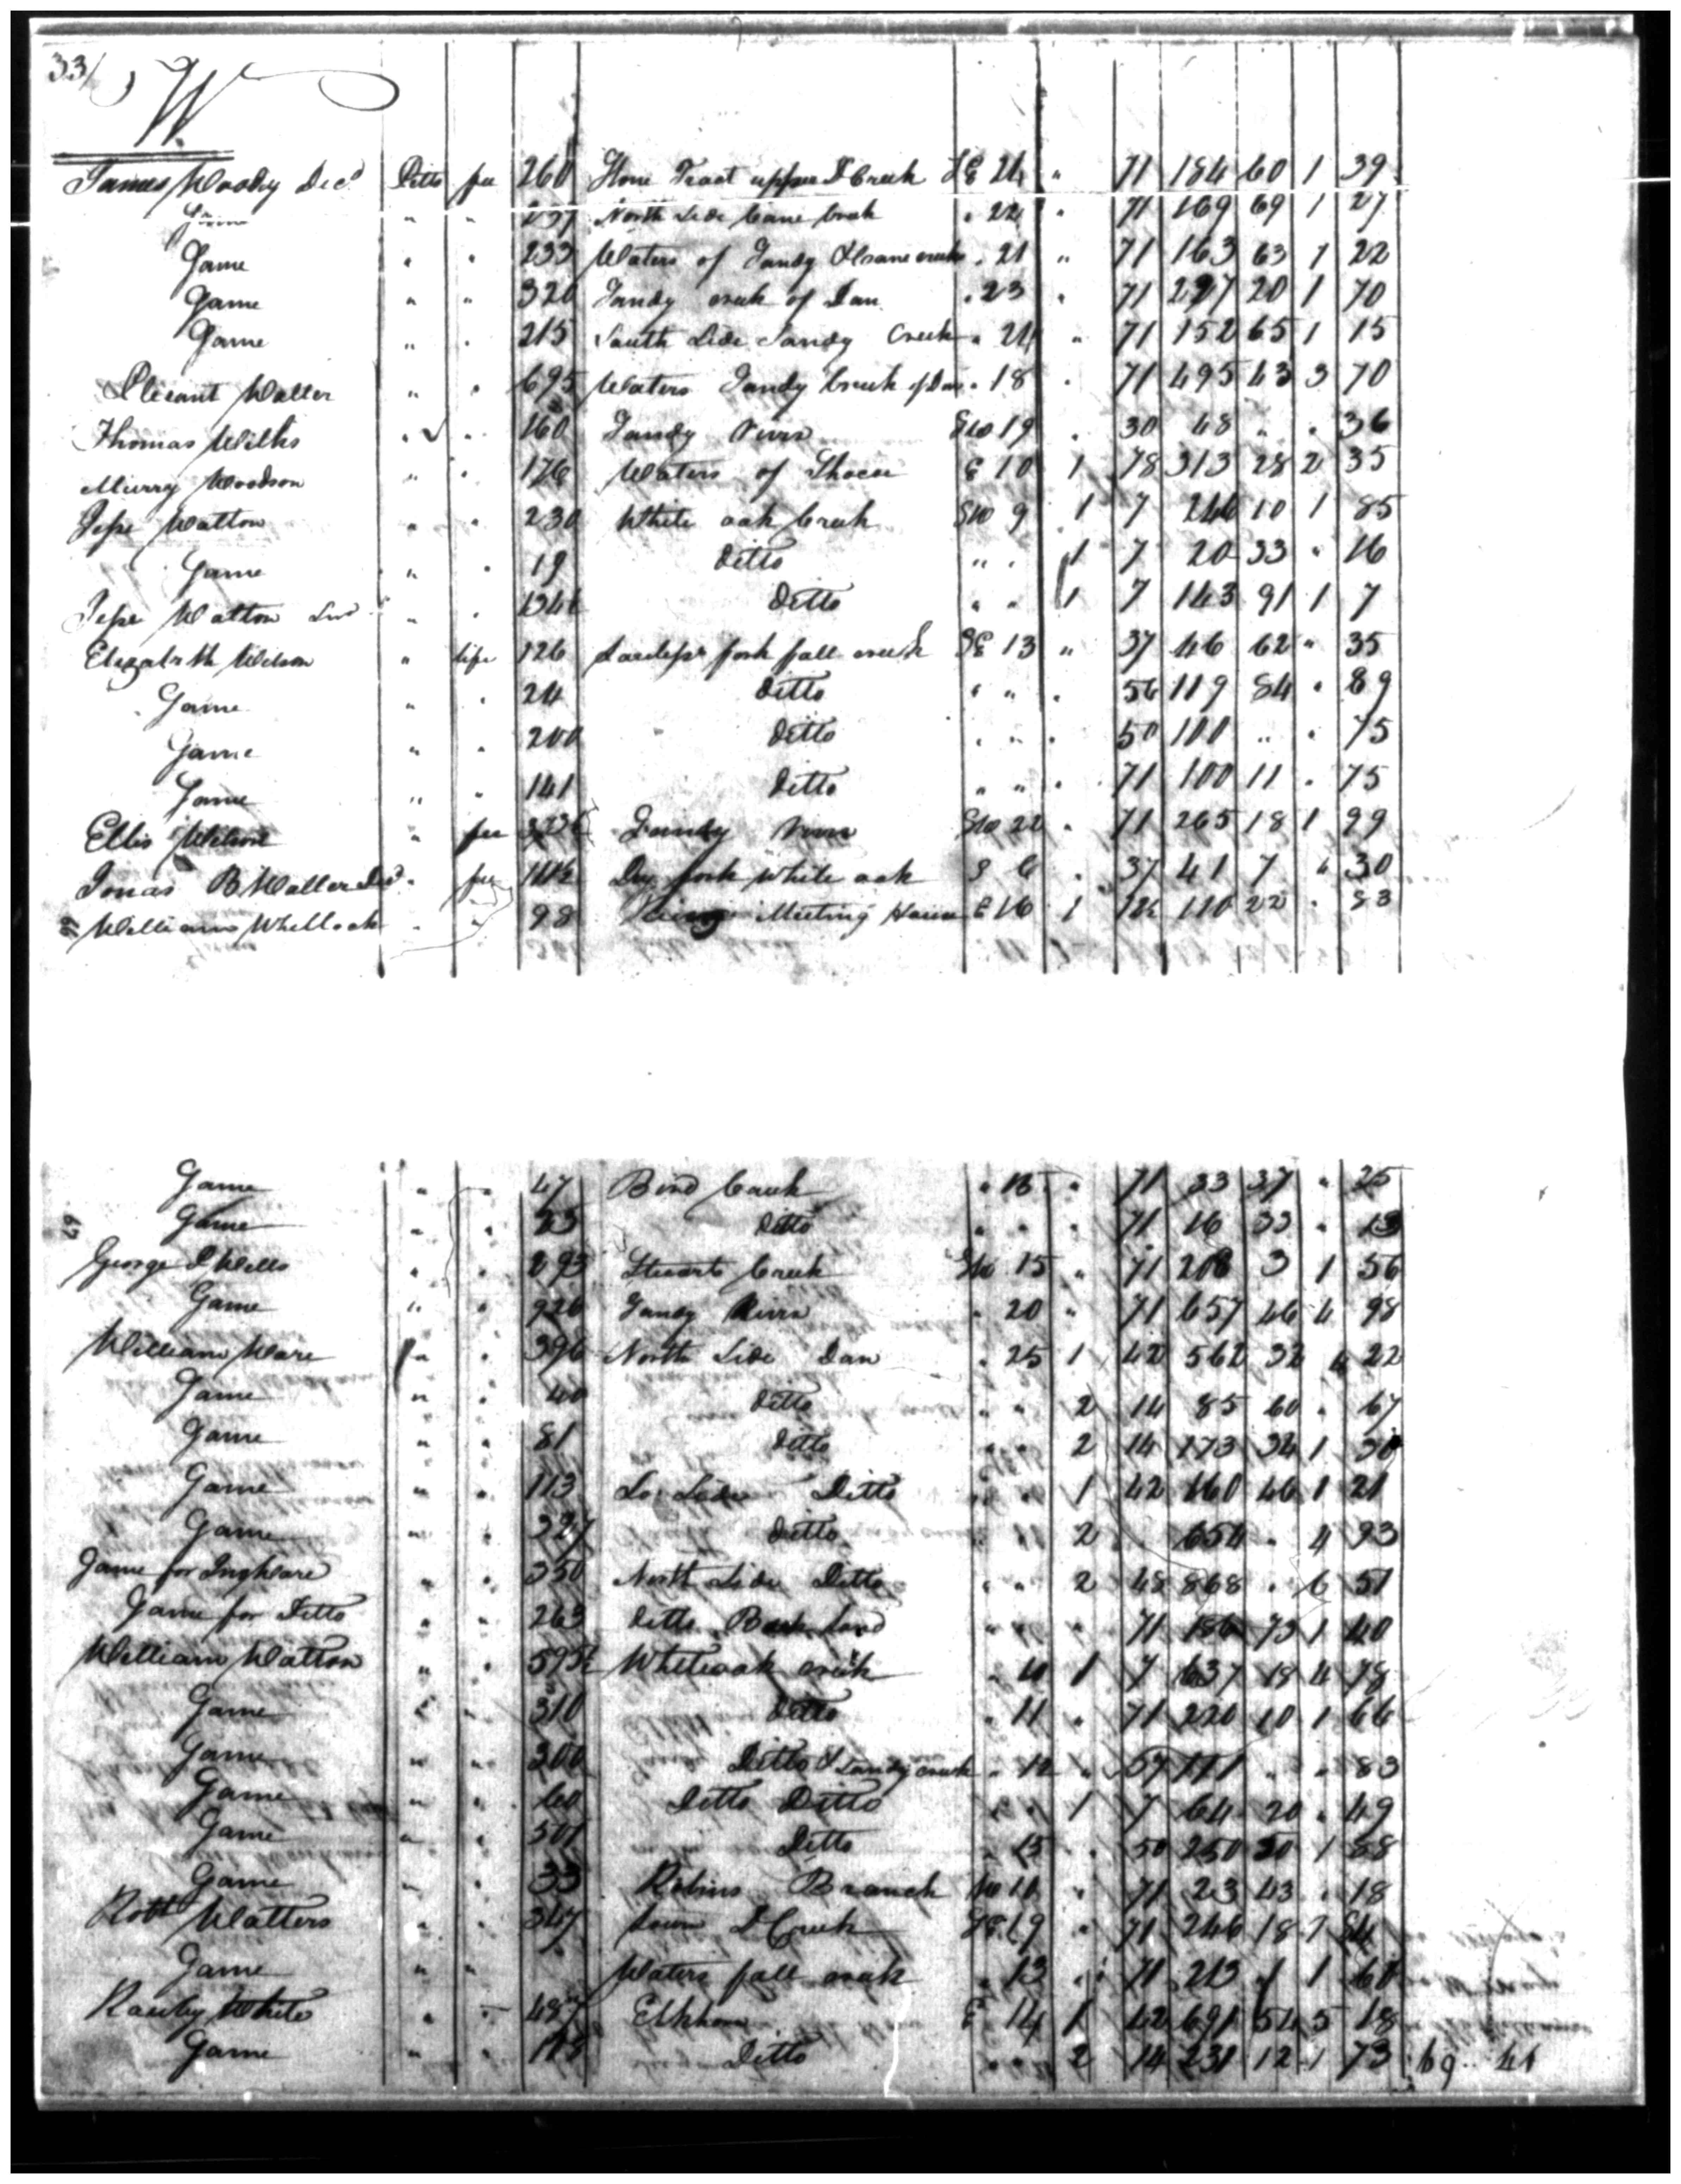 33/ W.
James Woody Decd Ditto fee 260 Home Tract upper D Creek SE 24 " 71 184 60 1 39
Same " " 237 North Side Cane Creek " 24 " 71 169 69 1 27
Same " " 233 Waters of Sandy & Cane creek " 21 " 71 163 63 1 22
Same " " 320 Sandy creek of Dan " 23 " 71 227 20 1 70
Same " " 215 South Side Sandy Creek " 24 " 71 152 65 1 15
Plesant Waller " " 695 Waters Sandy Creek of Dan " 18 " 71 495 43 3 70
Thomas Wilks " " 160 Sandy River SW 19 " 30 48 " " 36
Murry Woodson " " 176 Waters of Shocer E 10 1 78 313 28 2 35
Jesse Watton " " 230 White oak Creek SW 9 1 7 246 10 1 85
Same " " 19 Ditto " " 1 7 20 33 " 16
Jesse Watton " " 134½ Ditto " " 1 7 143 91 1 7
Elizabeth Wilson " life 126 fork fall creek SE 13 " 37 46 62 " 35
Same " " 214 Ditto " " " 56 119 84 " 89
Same " " 200 Ditto " " " 50 100 " " 75
Same " " 141 Ditto " " " 71 100 11 " 75
Ellis Wilson " fee Sandy River SW 22 " 71 265 18 1 99
Jonas B Waller Decd " fee 111½ Dry fork white oak S 6 " 37 41 7 " 30
William Whitlock " " 98 Meeting House E 16 1 12½ 110 22 " 83
Same " " 47 Bird Creek " 18 " 71 33 37 " 25
Same " " 23 Ditto " " " 71 16 33 " 13
George D Wells " " 293 Stewarts Creek SW 15 " 71 208 3 1 56
Same " " 926 Sandy River " 20 " 71 657 46 4 98
William Ware " " 396 North Side Dan " 25 1 42 562 32 4 22
Same " " 40 Ditto " " 2 14 85 60 " 67
Same " " 81 Ditto " " 2 14 173 34 1 30
Same " " 113 So Side Ditto " " 1 42 160 46 1 21
Same " " 327 Ditto " 11 2 654 " 4 93
Same for Ware " " 350 North Side Ditto " " 2 48 868 " 6 51
Same for Ditto " " 263 Ditto Back Land " " " 71 186 73 1 40
William Watton " " 595½ Whiteoak creek " 10 1 7 637 18 4 78
Same " " 310 Ditto " 11 " 71 220 10 1 66
Same " " 300 Ditto & Sandy creek " 12 " 37 111 " " 83
Same " " 60 Ditto Ditto " " 1 7 64 20 " 49
Same " " 501 Ditto " 15 " 50 250 50 1 88
Same " " 33 Robins Branch W 11 " 71 23 43 " 18
Robt Watters " " 347 down D Creek SE 19 " 71 246 18 1 84
Same " " Waters fall creek " 13 " 71 213 1 1 60
Rawley White " " 487 Elkhorn E 14 1 42 691 54 5 18
Same " " 108 Ditto " " 2 14 231 12 1 73 69 41